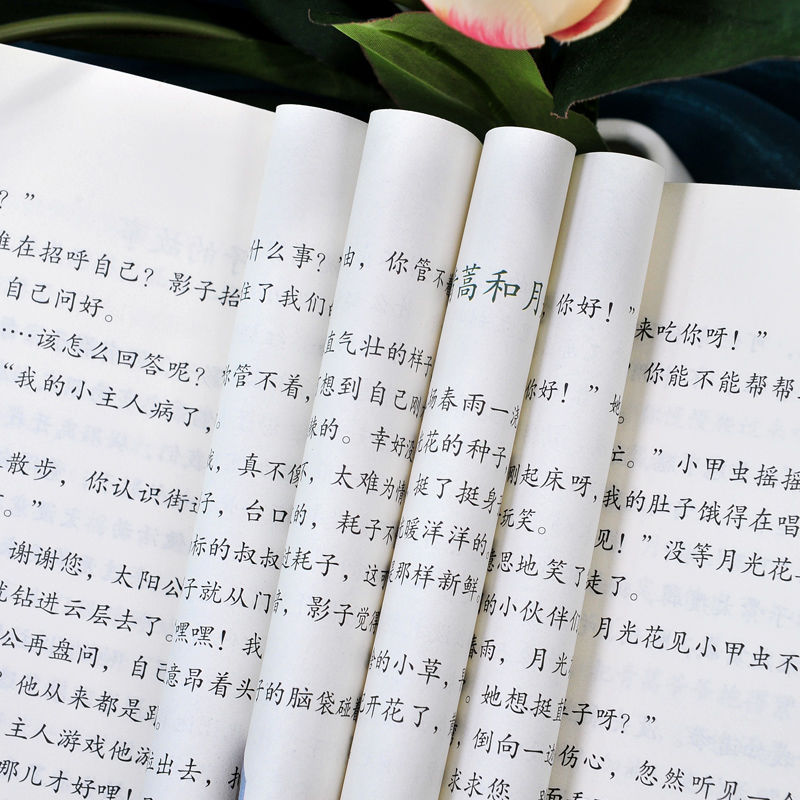 ？”
在招呼自己？影子抬
自己问好。
……该怎么回答呢？
“我的小主人病了，
散步，你认识街
。”
谢谢您，太阳公
钻进云层去了。
公再盘问，自己
他从来都是
主人游戏他
哪儿才好哩！
什么事？
住了我们
你管不着，
，真不
子，台口
标的叔叔
子就从门
嘿嘿！我
意昂着头
出去，
由，你管不着
直气壮的样子
想到自己刚
的。幸好没
，太难为情
的，耗子不
过耗子，这
，影子觉得
子的脑袋碰
蒿和月
春雨一浇
花的种子
挺了挺身
暖洋洋的
那样新鲜。
的小草，
开花了，
，你好！”
你好！”
刚起床呀，
玩笑。
意思地笑了
的小伙伴们
春雨，月光
。她想挺直
，倒向一边
求求您，
来吃你呀！”
你能不能帮帮
她。
忙。”小甲虫摇摇
我的肚子饿得在唱
见！”没等月光花
走了。
月光花见小甲虫不
子呀？”
伤心，忽然听见一个